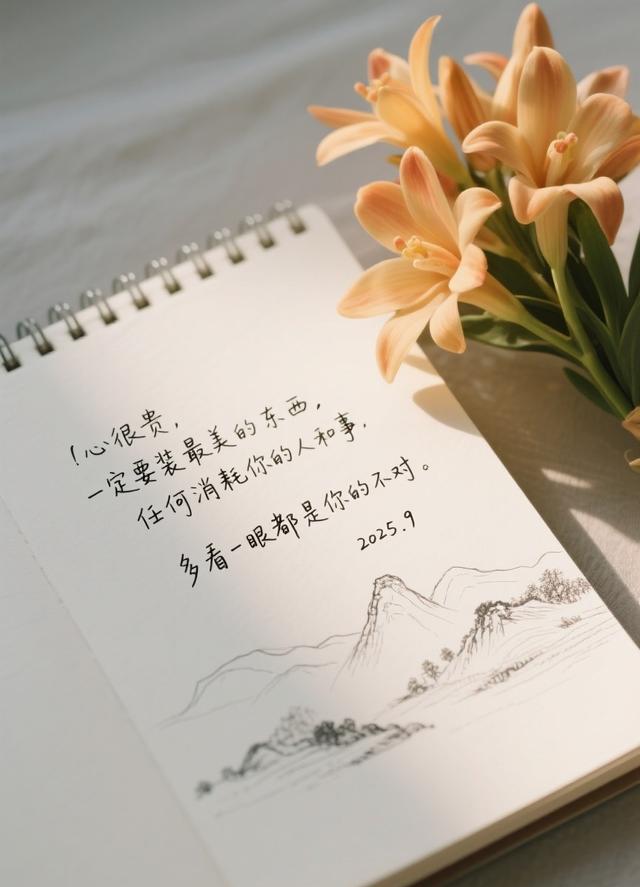 !心很贵,
一定要装最美的东西,
任何消耗你的人和事,
多看一眼都是你的不对。
2025.9